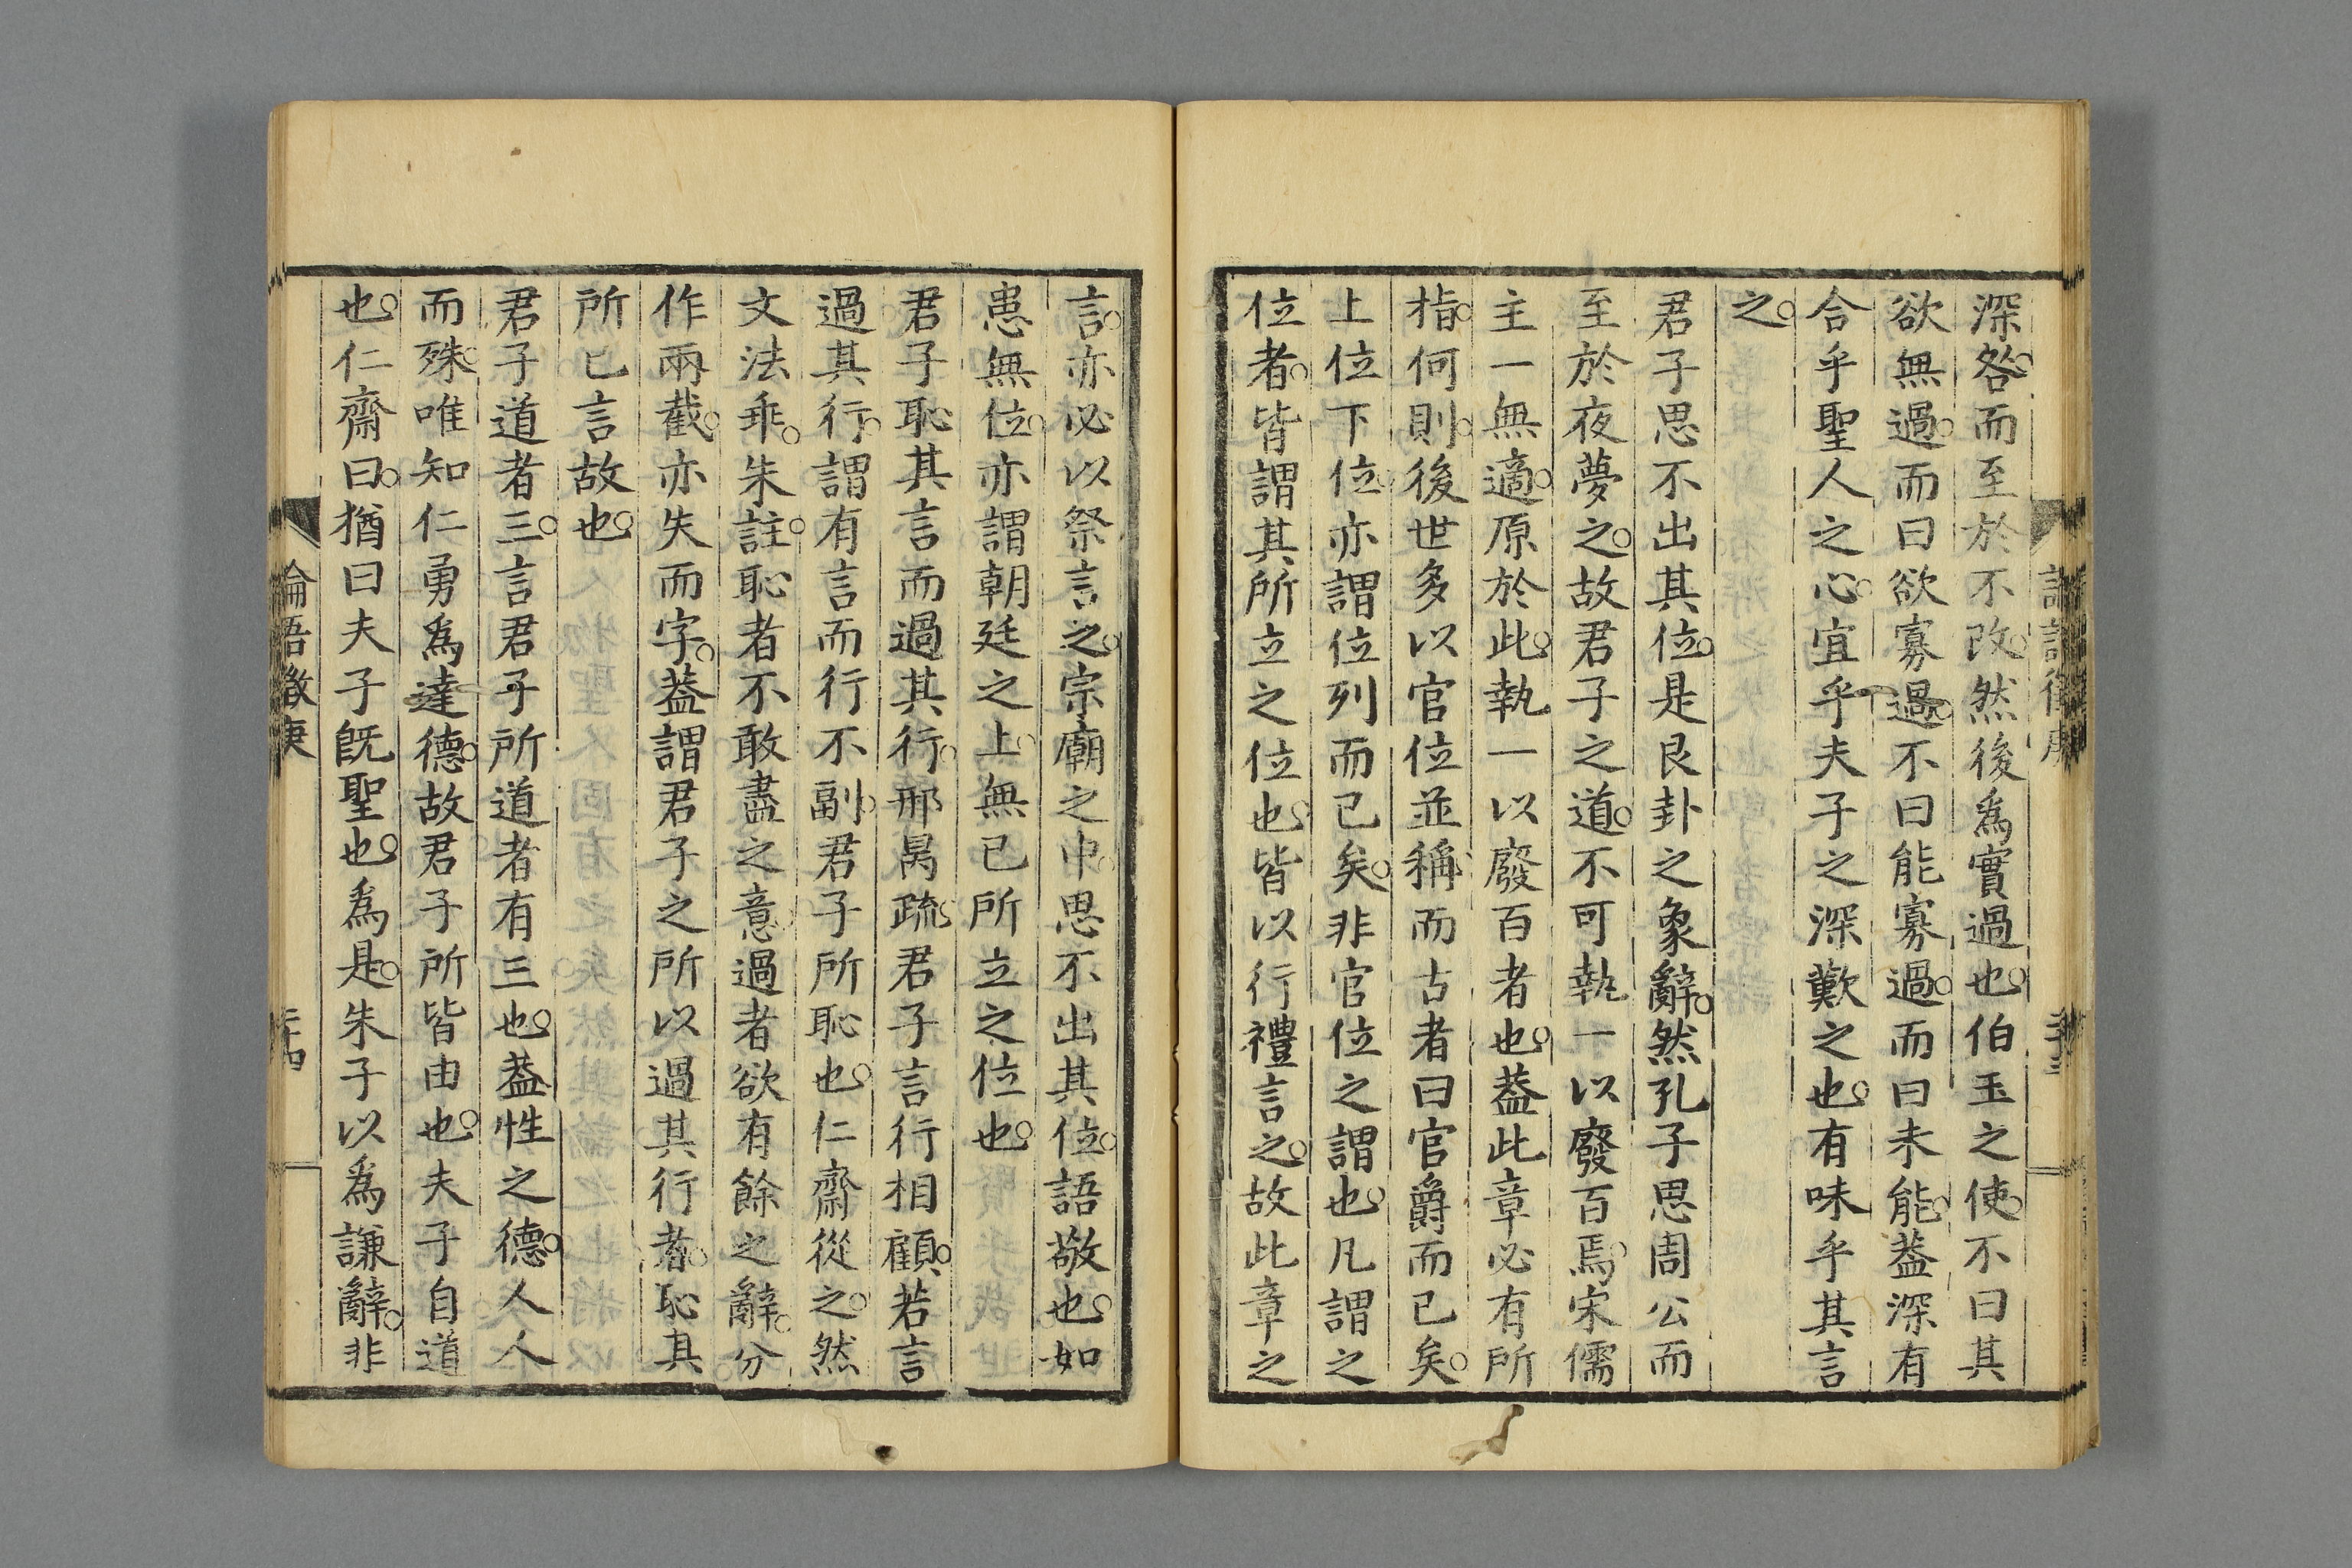 深咎而至於不改然後爲實過也伯玉之使不曰其
欲無過而曰欲寡過不曰能寡過而曰未能葢深有
合乎聖人之心宜乎夫子之深歎之也有味乎其言
之
君子思不出其位是艮卦之象辭然孔子思周公而
至於夜夢之故君子之道不可執一以廢百焉宋儒
主一無適原於此執一以廢百者也葢此章必有所
指何則後世多以官位並稱而古者曰官爵而已矣
上位下位亦謂位列而已矣非官位之謂也凡謂之
位者皆謂其所立之位也皆以行禮言之故此章之
言亦必以祭言之宗廟之中思不出其位語敬也如
患無位亦謂朝廷之上無已所立之位也
君子恥其言而過其行邢昺疏君子言行相顧若言
過其行謂有言而行不副君子所恥也仁齋從之然
文法乖朱註恥者不敢盡之意過者欲有餘之辭分
作兩截亦失而字葢謂君子之所以過其行者恥其
所已言故也
君子道者三言君子所道者有三也葢性之德人人
而殊唯知仁勇爲達德故君子所皆由也夫子自道
也仁齋曰猶曰夫子既聖也爲是朱子以爲謙辭非
論語徵庚